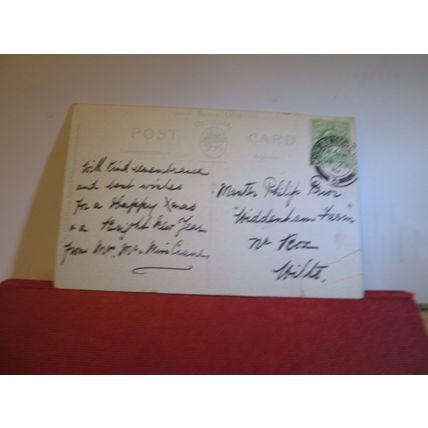 POST CARD
With kind remembrance
and best wishes
for a Happy Xmas
& a Bright New Year
from Mr, Mrs & Miss Crane
Master Philip
Widdenham Farm
Nr Box
Wilts.